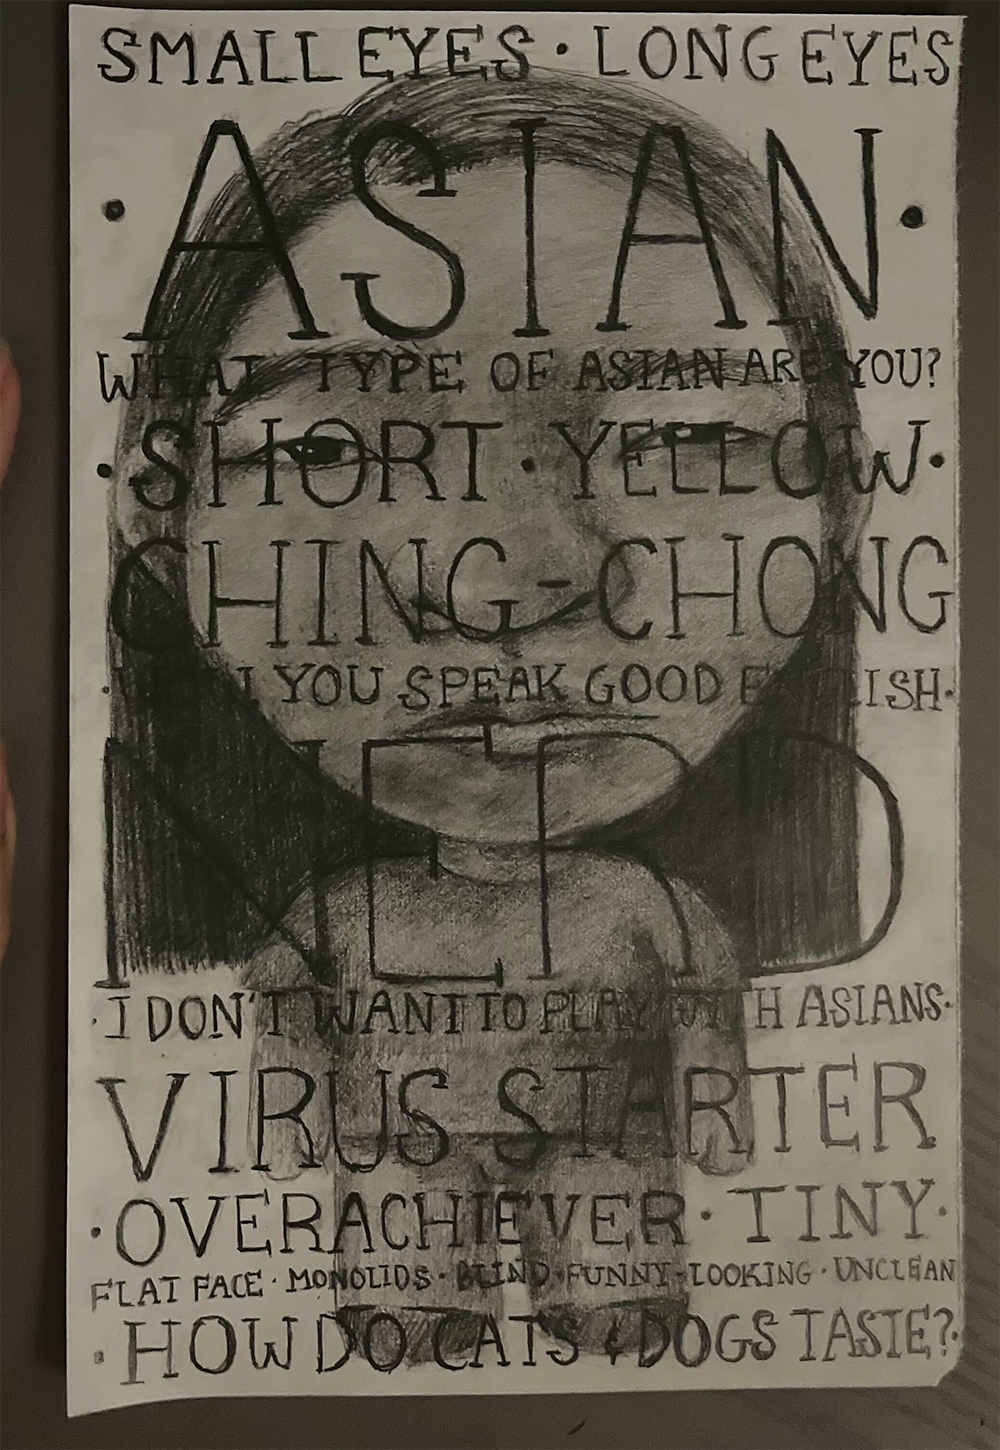 SMALL EYES · LONG EYES
· ASIAN ·
WHAT TYPE OF ASIAN ARE YOU?
· SHORT · YELLOW ·
CHING-CHONG
YOU SPEAK GOOD ENGLISH ·
NERD
· I DON'T WANT TO PLAY WITH ASIANS ·
VIRUS STARTER
· OVERACHIEVER · TINY ·
FLAT FACE · MONOLIDS · BLIND · FUNNY-LOOKING · UNCLEAN
· HOW DO CATS & DOGS TASTE? ·